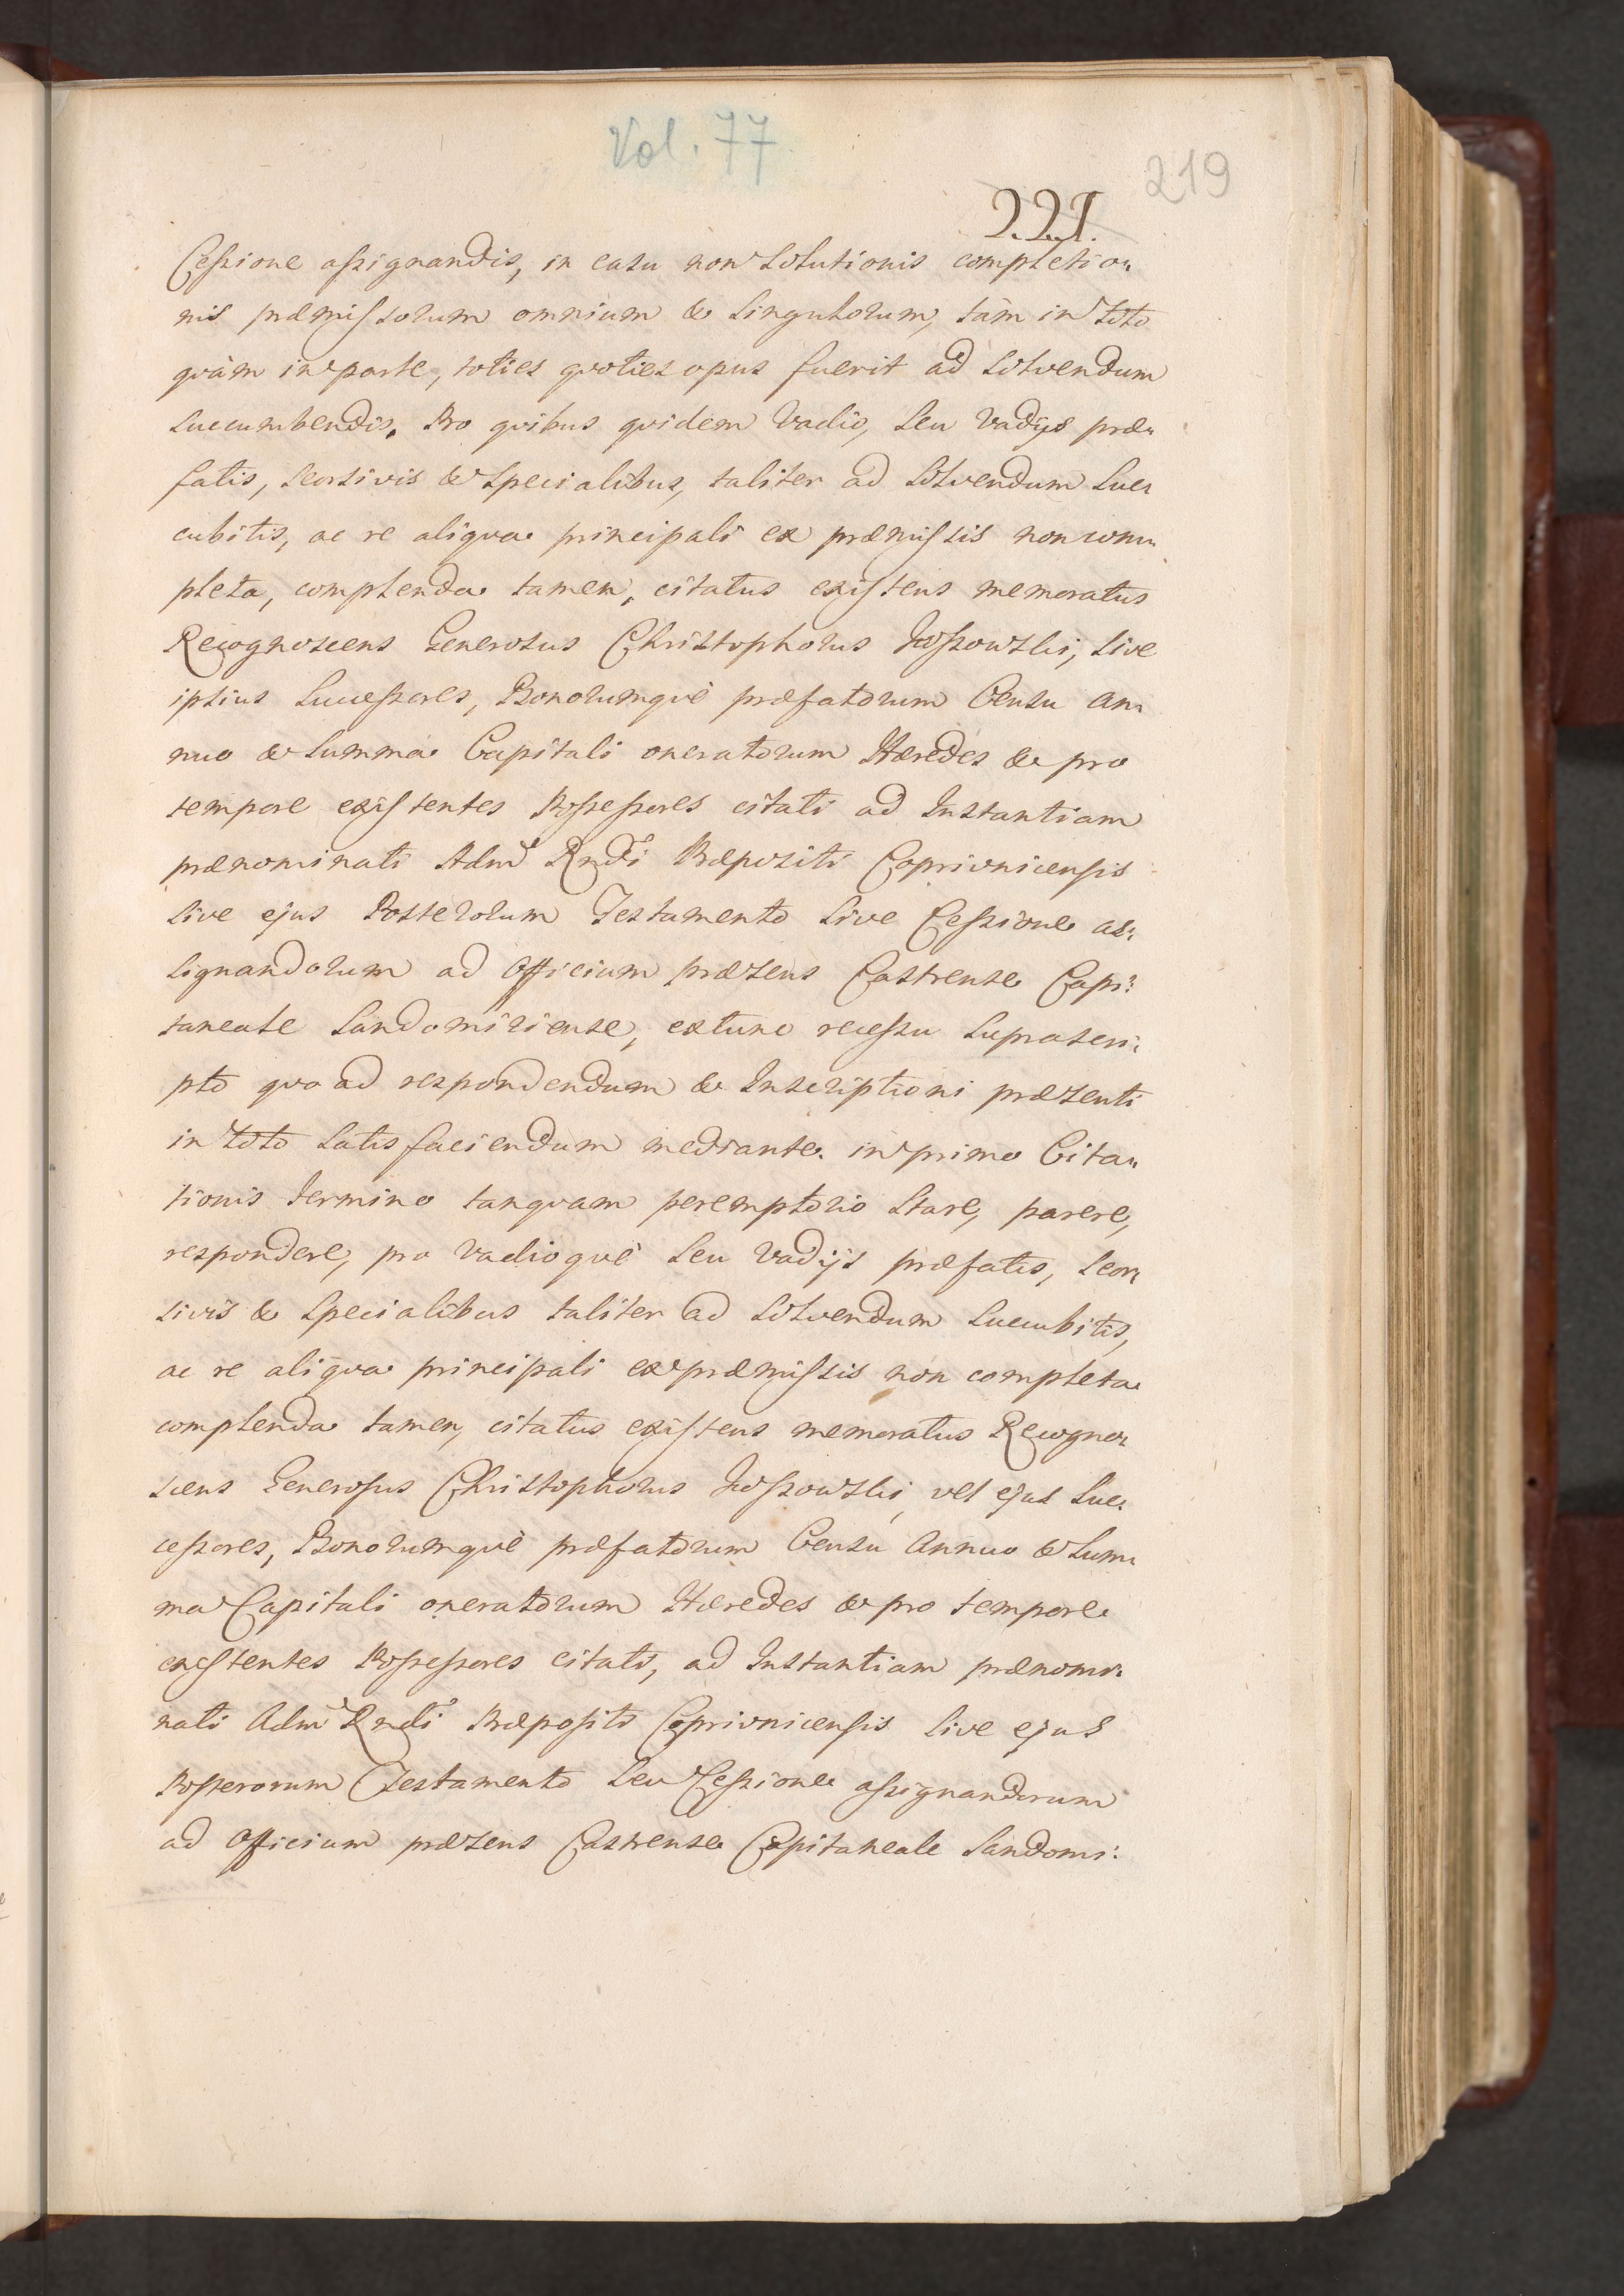 Vol. 77
219
221.
Cessione assignandis, in casu non Solutionis completio„
nis præmissorum omnium & Singulorum, tàm in toto
quàm in parte, toties quoties opus fuerit ad Solvendum
Succumbendis. Pro quibus quidem Vadio, Seu Vadijs præ„
fatis, Seorsivis & Specialibus, taliter ad Solvendum Suc„
cubitis, ac re aliqua principali ex præmissis non com„
pleta, complenda tamen, citatus existens memoratus
Recognoscens Generosus Christophorus Sive
ipsius Successores, Bonorumquè præfatorum Censu an„
nuo & Summa Capitali oneratorum Hæredes & pro
tempore existentes Possessores citati ad Instantiam
prænominati Admd Rndi Præpositi Coprivnicensis
Sive ejus Posterorum Testamento Sive Cessione as„
Signandorum ad Officium præsens Castrense Capi„
taneale Sandomiriense, extunc recessu Suprascri„
pto quo ad respondendum & Inscriptioni præsenti
in toto Satisfaciendum mediante. in primo Cita„
tionis termino tanquam peremptorio Stare, parere,
respondere, pro Vadioquè Seu Vadijs præfatis, Seor„
sivis & Specialibus taliter ad Solvendum Succubitis,
ac re aliqua principali ex præmissis non completa
complenda tamen, citatus existens memoratus Recogno„
scens Generosus Christophorus vel ejus Suc„
cessores, Bonorumquè præfatorum Censu Annuo & Sum„
ma Capitali oneratorum Hæredes & pro tempore
existentes Possessores citati, ad Instantiam prænomi„
nati Admd Rndi Præpositi Coprivnicensis Sive ejus
Posterorum Testamento Seu Cessione assignandorum
ad Officium præsens Castrense Capitaneale Sandomi„